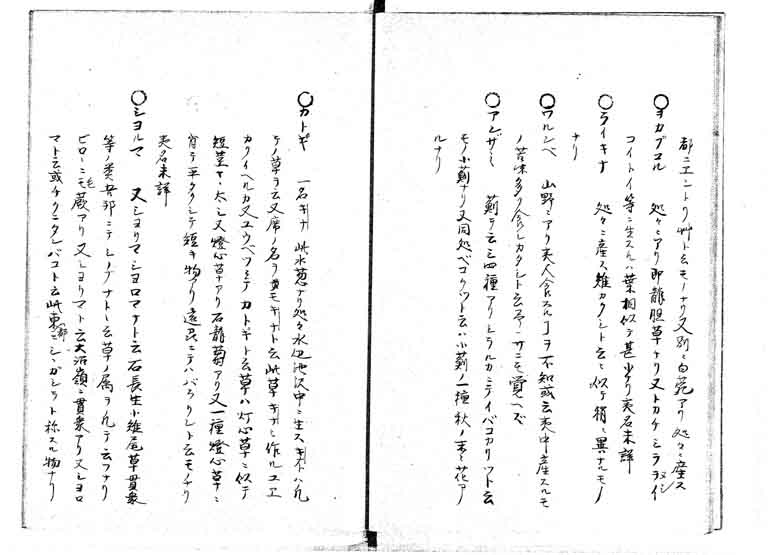 都ニエントウ艸ト云モノナリ又別ニ白菀アリ処々ニ産ス
○ヲカブコル 処々ニアリ即龍胆草ナリ又トカケシラヌイ
コイトイ等ニ生スルハ葉相似テ甚少ナリ夷名未詳
○ライキナ 処々ニ産ス雉カクシト云ニ似テ稍ニ異ナルモノ
ナリ
○ワルンベ 山野ニアリ夫人食スルヿヲ不知或云夷中産スルモ
ノ苦味多ク食シカタシト云予ハサニモ覚ヘズ
○アンザミ 薊ヲ云三四種アリシラルカニライバコカリツト云
モノ小薊ナリ又同処ベコクツト云ハ小薊ノ一種秋ノ末ニ花アノ
ルナリ
○カトギ 一名キナ 此水葱ナリ処々水辺池沢中ニ生ス キナトハ凡
テノ草ヲ云又席ノ名ヲ貫モキナト云此草キナニ作ルユエ
カクイヘルカ又ユウベツニテカトギト云草ハ灯心草ニ似テ
短茎ヤヽ太シ又燈心草アリ石龍蒭アリ又一種燈心草ニ
肖テ平タクシテ短キ物アリ遠呂ニテハバウクレト云モナリ
夷名未詳
○シヨルマ 又シヨリマシヨロマナト云石長生小雉尾草貫衆
等ノ类共邦ニテシノブナト云草ノ属ヲ凡テ云フナリ
ビローニモ蕨アリ又シヨリマト云大沼嶺ニ貫衆アリ又シヨロ
マト云或チクニタレバコト云此東部ニシシガシラト称スル物ナリ